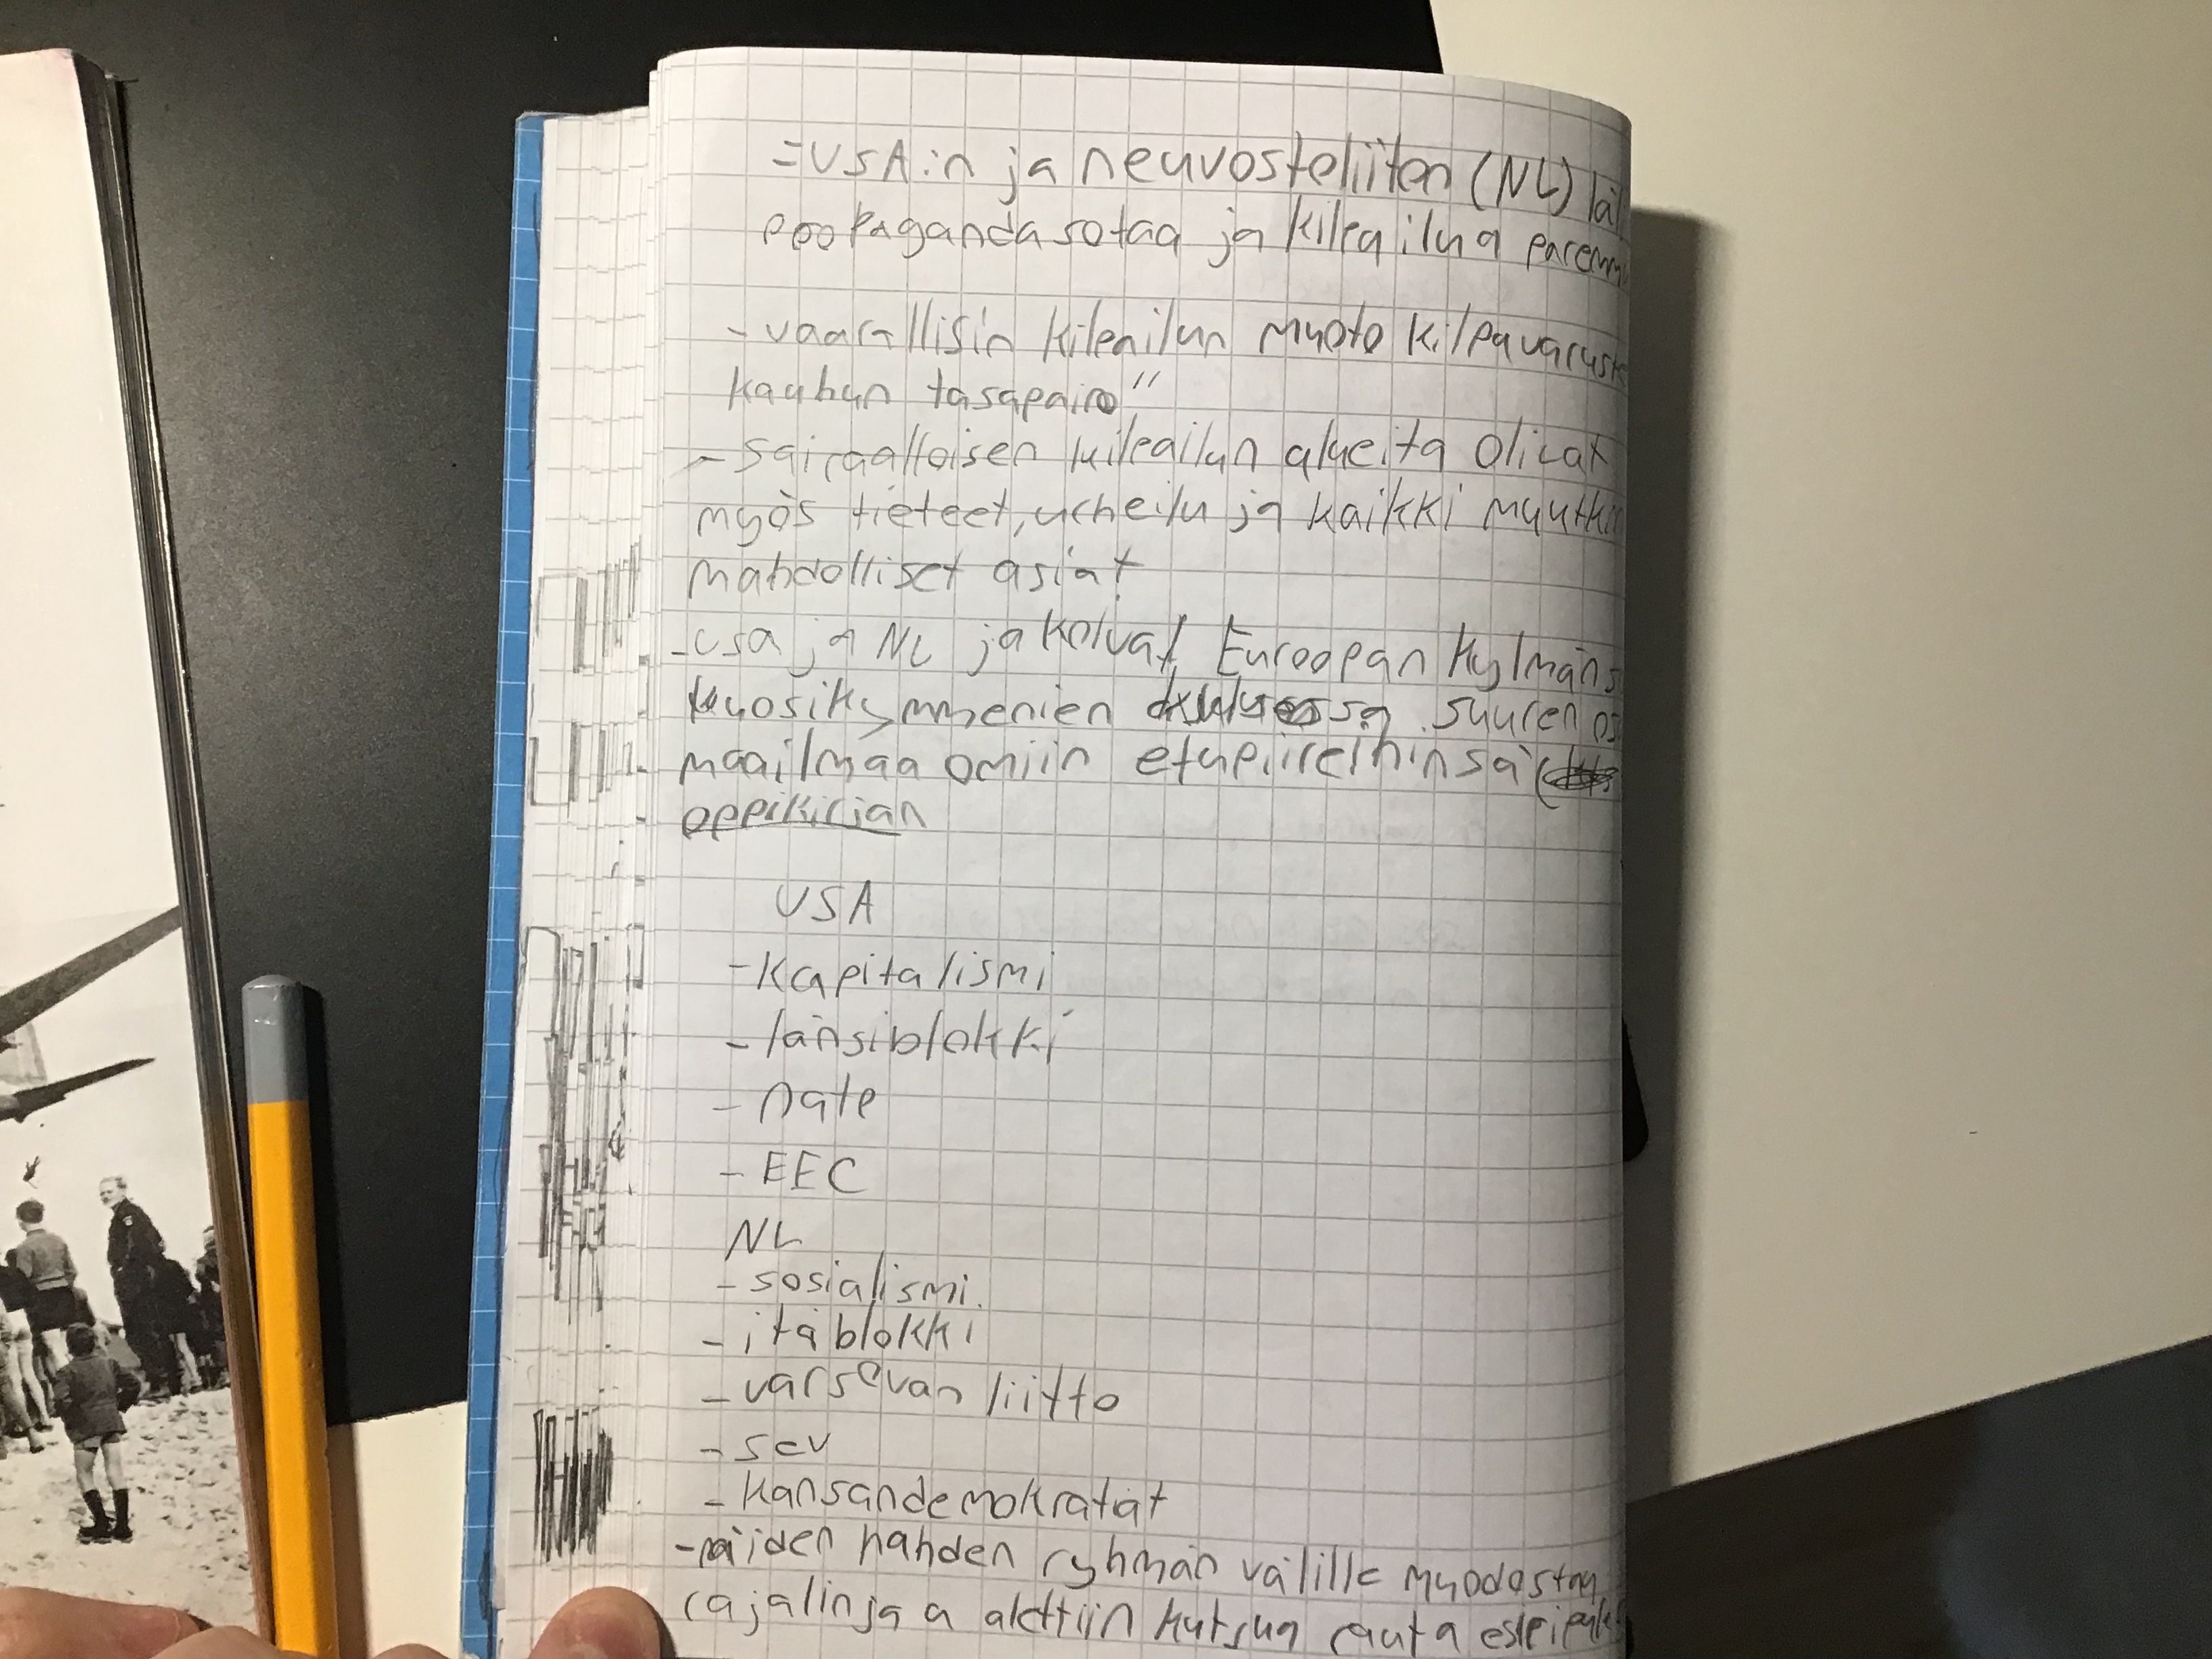 =USA:n ja neuvosteliiton (NL) 
propagandasotaa ja kilpailua
- vaarallisin kilpailun muoto
kauhun tasapaino"
- sairaalloisen kilpailun alueita olivat
myös tieteet, urheilu ja kaikki muutkin
mahdolliset asiat
- usa ja NL jakoivat Euroopan
vuosikymmenien suuren
maailmaa omiin etupiireihinsä (
oppikirjan
USA
- kapitalismi
- länsiblokki
- nato
- EEC
NL
- sosialismi
- itäblokki
- varsovan liitto
- sev
- kansandemokratiat
- näiden kahden ryhmän välille
rajalinjaa alettiin kutsua rauta